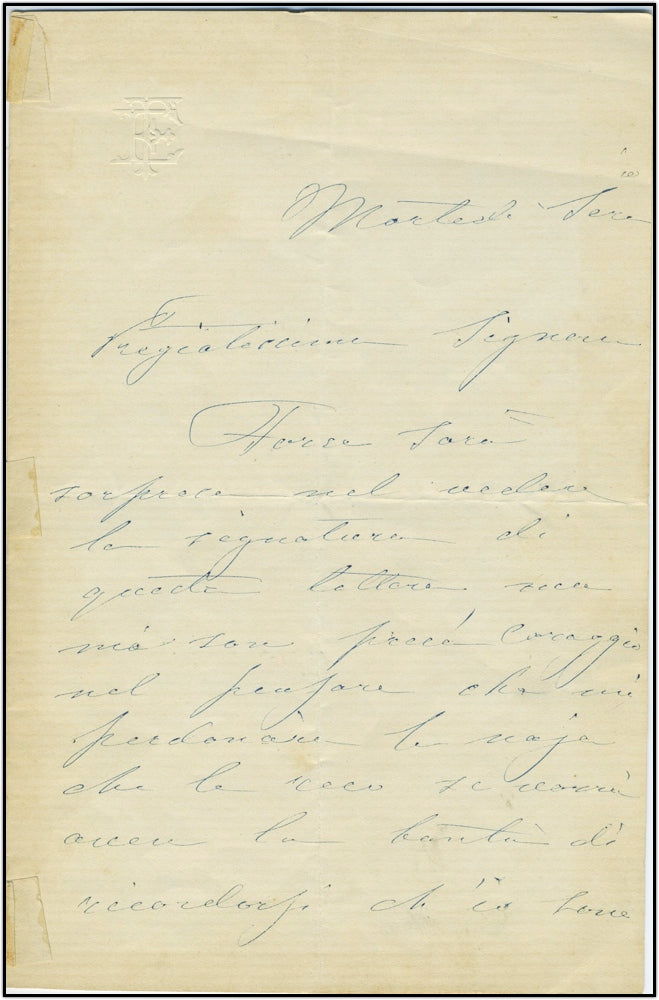 Martedì Sera
Pregiatissimo Signore
Forse sarà
sorpresa nel vedere
la signatura di
questa lettera
mi son presa Coraggio
nel pensare che mi
perdonare la noja
che le reco se vorrà
avere la bontà di
ricordarsi ch'io sono